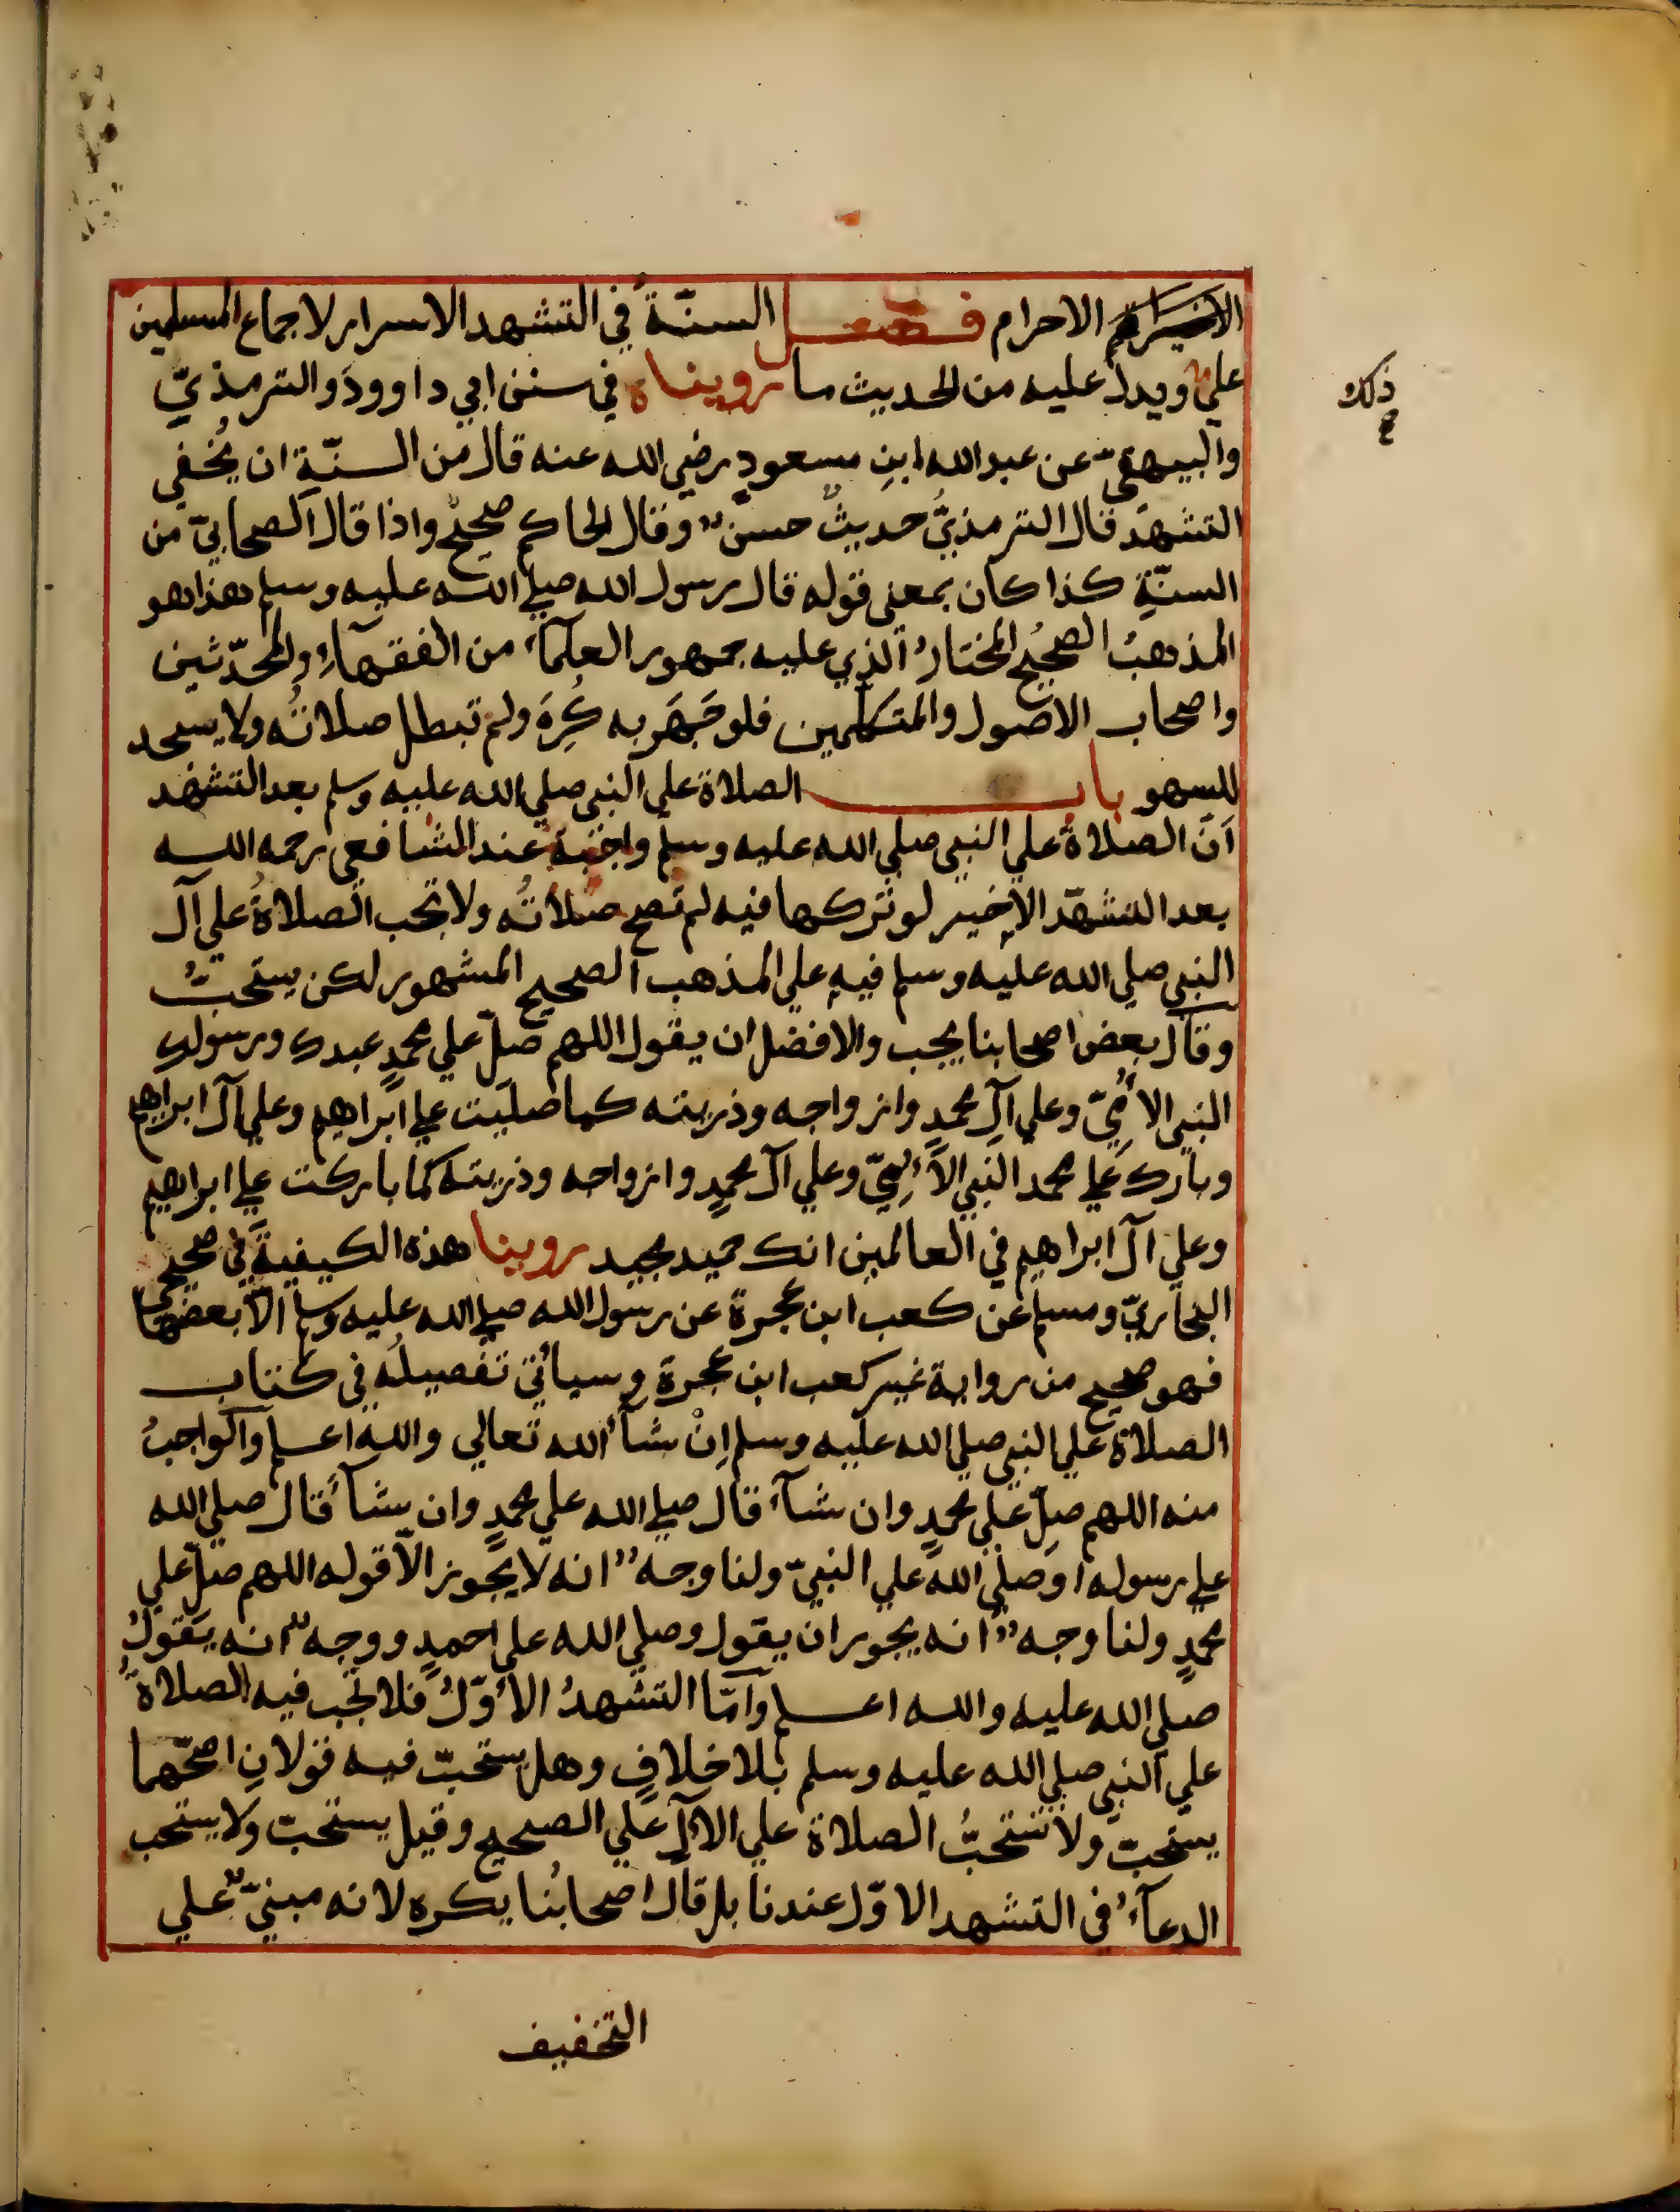 الاحرام فصل السنّةُ في التشهد الاسرار لاجماع المسلمين
علي ويدلّ عليه من الحديث ما رويناه في سنن ابي داوود والترمذيّ
ذلك صح
والبيهقيّ عن عبد الله ابنِ مسعودٍ رضي الله عنه قال من السنّة ان يُخفي
التشهدَ قال الترمذيُّ حديثٌ حسنٌ وقال الحاكم صحيحٌ واذا قال الصحابيّ من
السنّةِ كذا كان بمعني قوله قال رسول الله صلي الله عليه وسلم هذا هو
المذهبُ الصحيحُ المختارُ الذي عليه جمهور العلمآء من الفقهآءِ والمحدّثين
واصحاب الاصول والمتكلمين فلو جَهَر به كُرِهَ ولم تبطل صلاتُه ولا يسجد
للسهو باب الصلاة علي النبي صلي الله عليه وسلم بعد التشهد
انّ الصلاةَ علي النبي صلي الله عليه وسلم واجبة عند الشافعي رحمه الله
بعد التشهّد الاخير لو تركها فيه لم تصح صلاتُه ولا تجب الصلاةُ علي آل
النبي صلي الله عليه وسلم فيه علي المذهب الصحيح المشهور لكن يستحبُّ
وقال بعض اصحابنا يجب والافضل ان يقول اللهم صلّ علي محمدٍ عبدك ورسولك
النبي الاُمّيّ وعلي آلِ محمدٍ وازواجه وذريته كما صليت علي ابراهيم وعلي آل ابراهيم
وبارك علي محمد النبي الاُمّيّ وعلي آل محمدٍ وازواجه وذريته كما باركت علي ابراهيم
وعلي آل ابراهيم في العالمين انك حميد مجيد روينا هذه الكيفيةَ في صحيحي
البخاريّ ومسلم عن كعب ابن عجرة عن رسول الله صلي الله عليه وسلم الّا بعضها
فهو صحيح من رواية غير كعب ابن عجرة وسيأتي تفصيلُه في كتاب
الصلاة علي النبي صلي الله عليه وسلم اِنْ شآء الله تعالي والله اعلم والواجبُ
منه اللهم صلّ علي محمدٍ وان شآء قال صلي الله علي محمدٍ وان شآء قال صلي الله
علي رسوله او صلي الله علي النبيّ ولنا وجهٌ انه لا يجوز الّا قوله اللهم صلّ علي
محمدٍ ولنا وجهٌ انه يجوز ان يقول وصلي الله علي احمدٍ ووجهٌ انه يقولُ
صلي الله عليه والله اعلم وامّا التشهدُ الأوّلُ فلا تجب فيه الصلاةُ
علي النبي صلي الله عليه وسلم بلا خلافٍ وهل يستحبّ فيه قولان اصحّهما
يستحبّ ولا تستحبُّ الصلاة علي الآل علي الصحيح وقيل يستحبّ ولا يستحب
الدعآءُ في التشهد الاوّل عندنا بل قال اصحابُنا يكره لانه مبنيٌّ علي
التخفيف